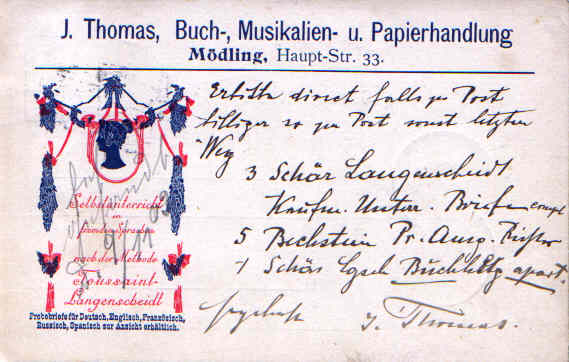 J. Thomas, Buch-, Musikalien- u. Papierhandlung
Mödling, Haupt-Str. 33.
Erbitte direct falls per Post
billiger so per Post sonst letzten
Weg
3 Schär Langenscheidt
Kaufm. Unter. Briefe compl
5 Bechstein Pr. Ausg.
1 Schär Lgsch Buchhltg apart.
J. Thomas.
Selbstunterricht
in
fremden Sprachen
nach der Methode
Toussaint-
Langenscheidt
Probebriefe für Deutsch, Englisch, Französisch,
Russisch, Spanisch zur Ansicht erhältlich.